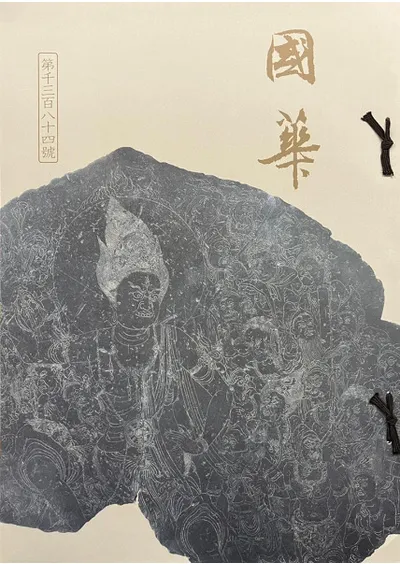 國華
第千三百八十四號